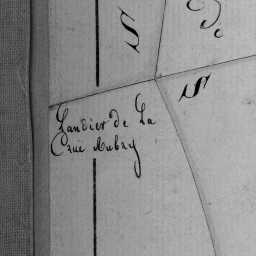 S
De
S
Landier de La
Crüe Aubry